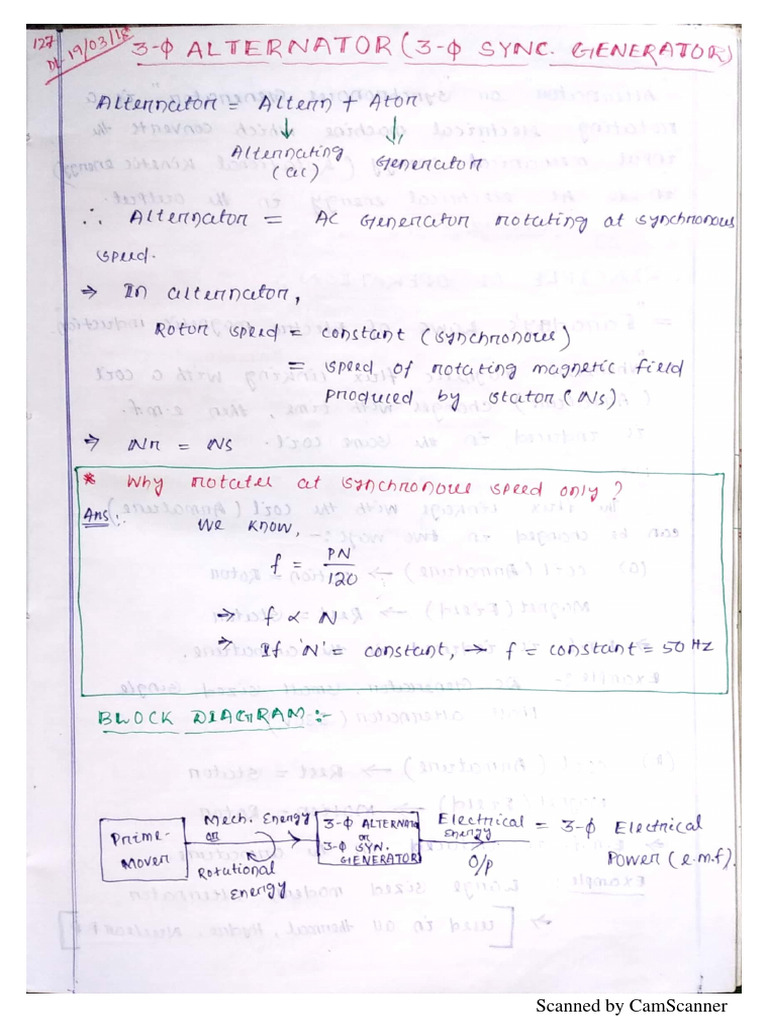 127
Dt-19/03/18
3-Φ ALTERNATOR (3-Φ SYNC. GENERATOR)
Alternator = Altern + Ator
Alternating (ac)
Generator
∴ Alternator = AC Generator rotating at synchronous
speed.
→ In alternator,
Rotor speed = constant (synchronous)
= speed of rotating magnetic field
produced by stator (Ns)
→ Nr = Ns
* Why rotates at synchronous speed only?
Ans:- We know,
f = PN/120
→ f ∝ N
→ If 'N' = constant, → f = constant = 50 Hz
BLOCK DIAGRAM:-
Prime-
Mover
Mech. Energy
or
Rotational
Energy
3-Φ ALTERNATOR
or
3-Φ SYN.
GENERATOR
Electrical
Energy
O/p
= 3-Φ Electrical
Power (e.m.f).
Scanned by CamScanner